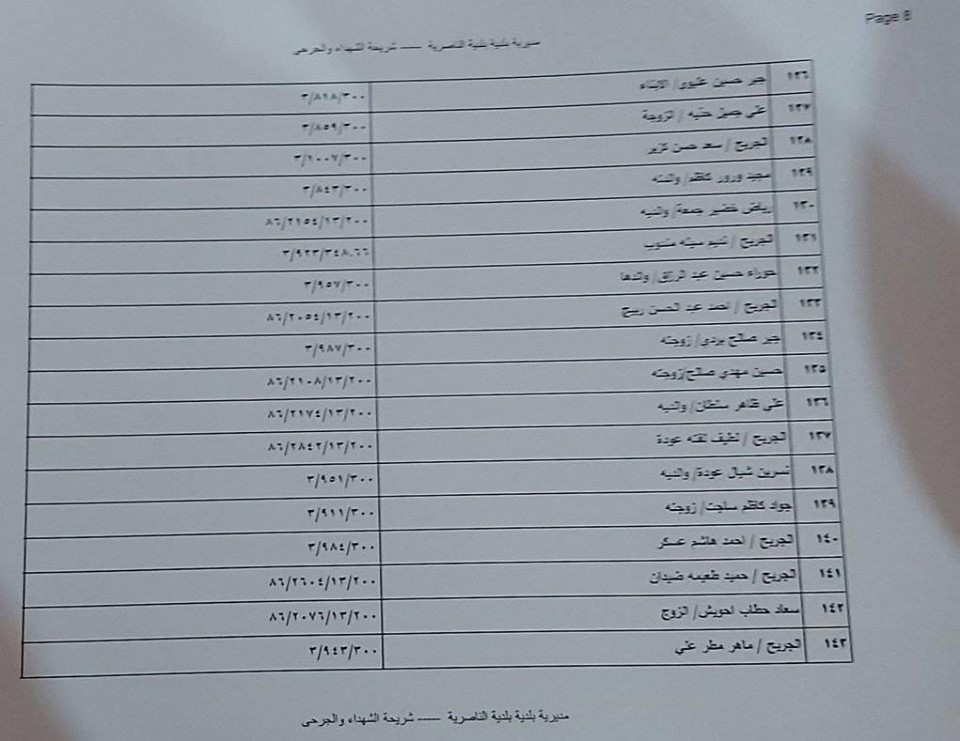 Page 8
مديرية بلدية بلدية الناصرية ----- شريحة الشهداء والجرحى
١٢٦ جبر حسين عليوي/ الابناء ٣/٨١٨/٣٠٠
١٢٧ علي جميل حنيه / الزوجة ٣/٨٥٩/٣٠٠
١٢٨ الجريح / سعد حسن كزير ٣/١٠٠٧/٣٠٠
١٢٩ مجيد ورور كاظم/ والدته ٣/٨٤٣/٣٠٠
١٣٠ رياض خضير جمعة/ والديه ٨٦/٢١٥٤/١٣/٢٠٠
١٣١ الجريح / نديم سيته ٣/٩٢٣/٣٤٨.٦٦
١٣٢ حوراء حسين عبد الرزاق/ والدها ٣/٩٥٧/٣٠٠
١٣٣ الجريح / احمد عبد الحسن ربيج ٨٦/٢٠٥٤/١٣/٢٠٠
١٣٤ جبر صالح بردي/ زوجته ٣/٩٨٧/٣٠٠
١٣٥ حسين مهدي صالح/زوجته ٨٦/٢١٠٨/١٣/٢٠٠
١٣٦ علي ظاهر سلطان/ والديه ٨٦/٢١٧٤/١٣/٢٠٠
١٣٧ الجريح / لطيف لفته عودة ٨٦/٢٨٤٢/١٣/٢٠٠
١٣٨ نسرين شيال عودة/ والديه ٣/٩٥١/٣٠٠
١٣٩ جواد كاظم ساجت/ زوجته ٣/٩١١/٣٠٠
١٤٠ الجريح / احمد هاشم عسكر ٣/٩٨٤/٣٠٠
١٤١ الجريح / حميد طعيمه ضيدان ٨٦/٢٦٠٤/١٣/٢٠٠
١٤٢ سعاد حطاب احويش/ الزوج ٨٦/٢٠٧٦/١٣/٢٠٠
١٤٣ الجريح / ماهر مطر علي ٣/٩٤٣/٣٠٠
مديرية بلدية بلدية الناصرية ----- شريحة الشهداء والجرحى